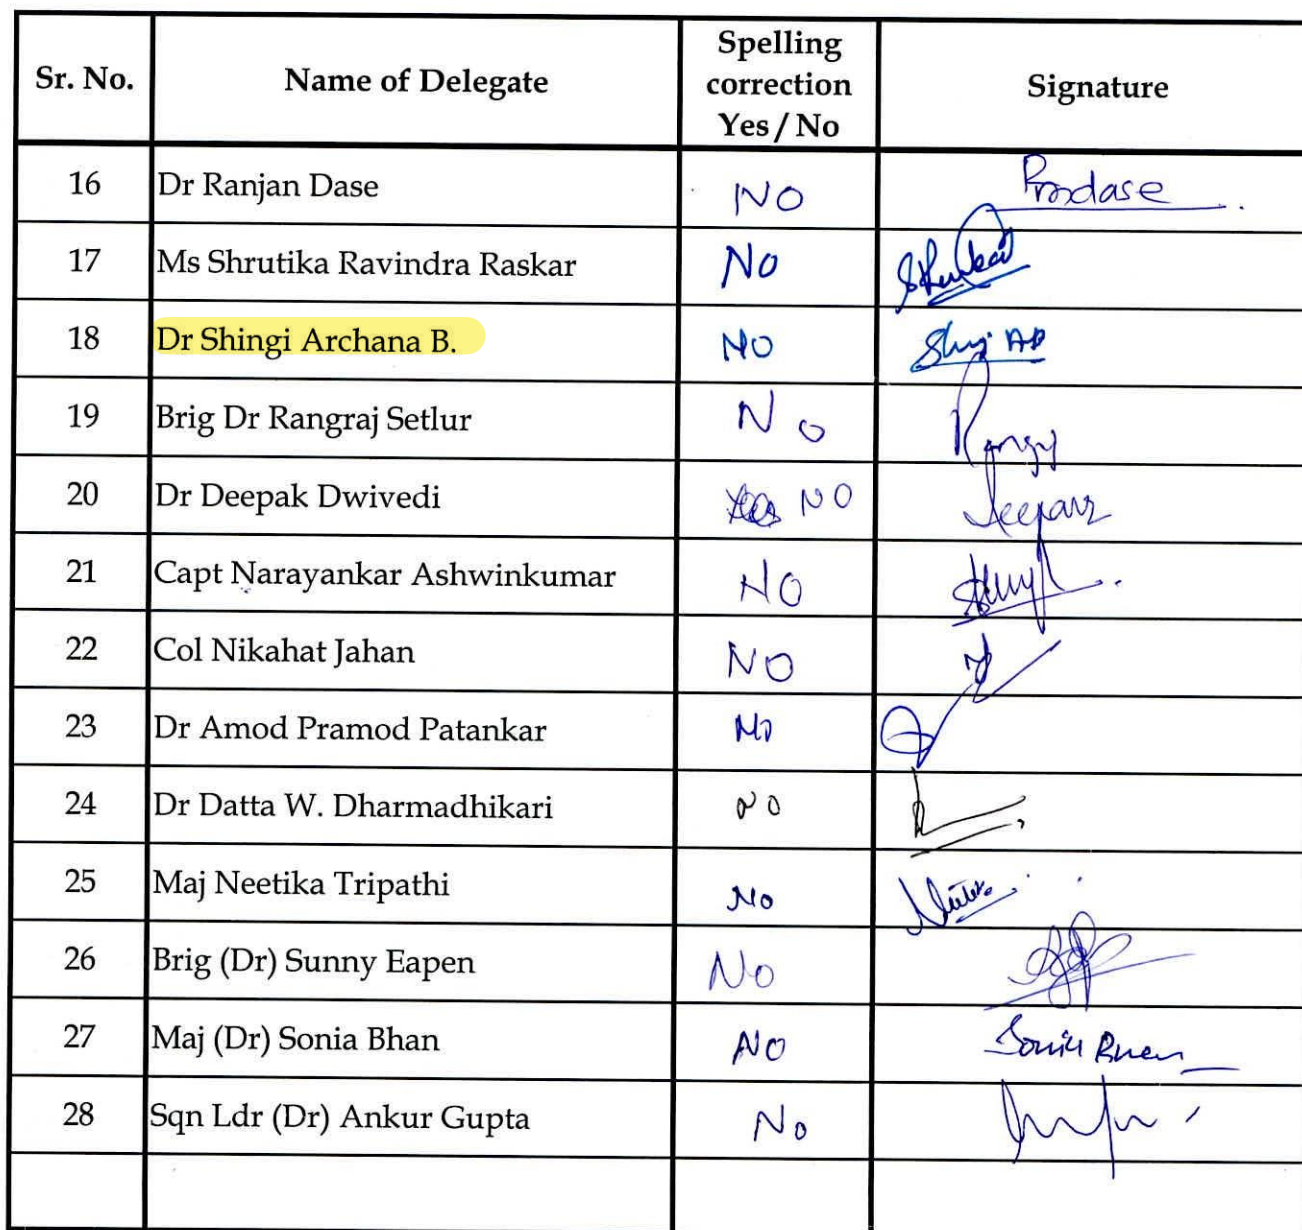 Sr. No. Name of Delegate Spelling correction Yes / No Signature
16 Dr Ranjan Dase NO
17 Ms Shrutika Ravindra Raskar NO
18 Dr Shingi Archana B. NO
19 Brig Dr Rangraj Setlur NO
20 Dr Deepak Dwivedi NO
21 Capt Narayankar Ashwinkumar NO
22 Col Nikahat Jahan NO
23 Dr Amod Pramod Patankar No
24 Dr Datta W. Dharmadhikari No
25 Maj Neetika Tripathi No
26 Brig (Dr) Sunny Eapen No
27 Maj (Dr) Sonia Bhan NO
28 Sqn Ldr (Dr) Ankur Gupta No